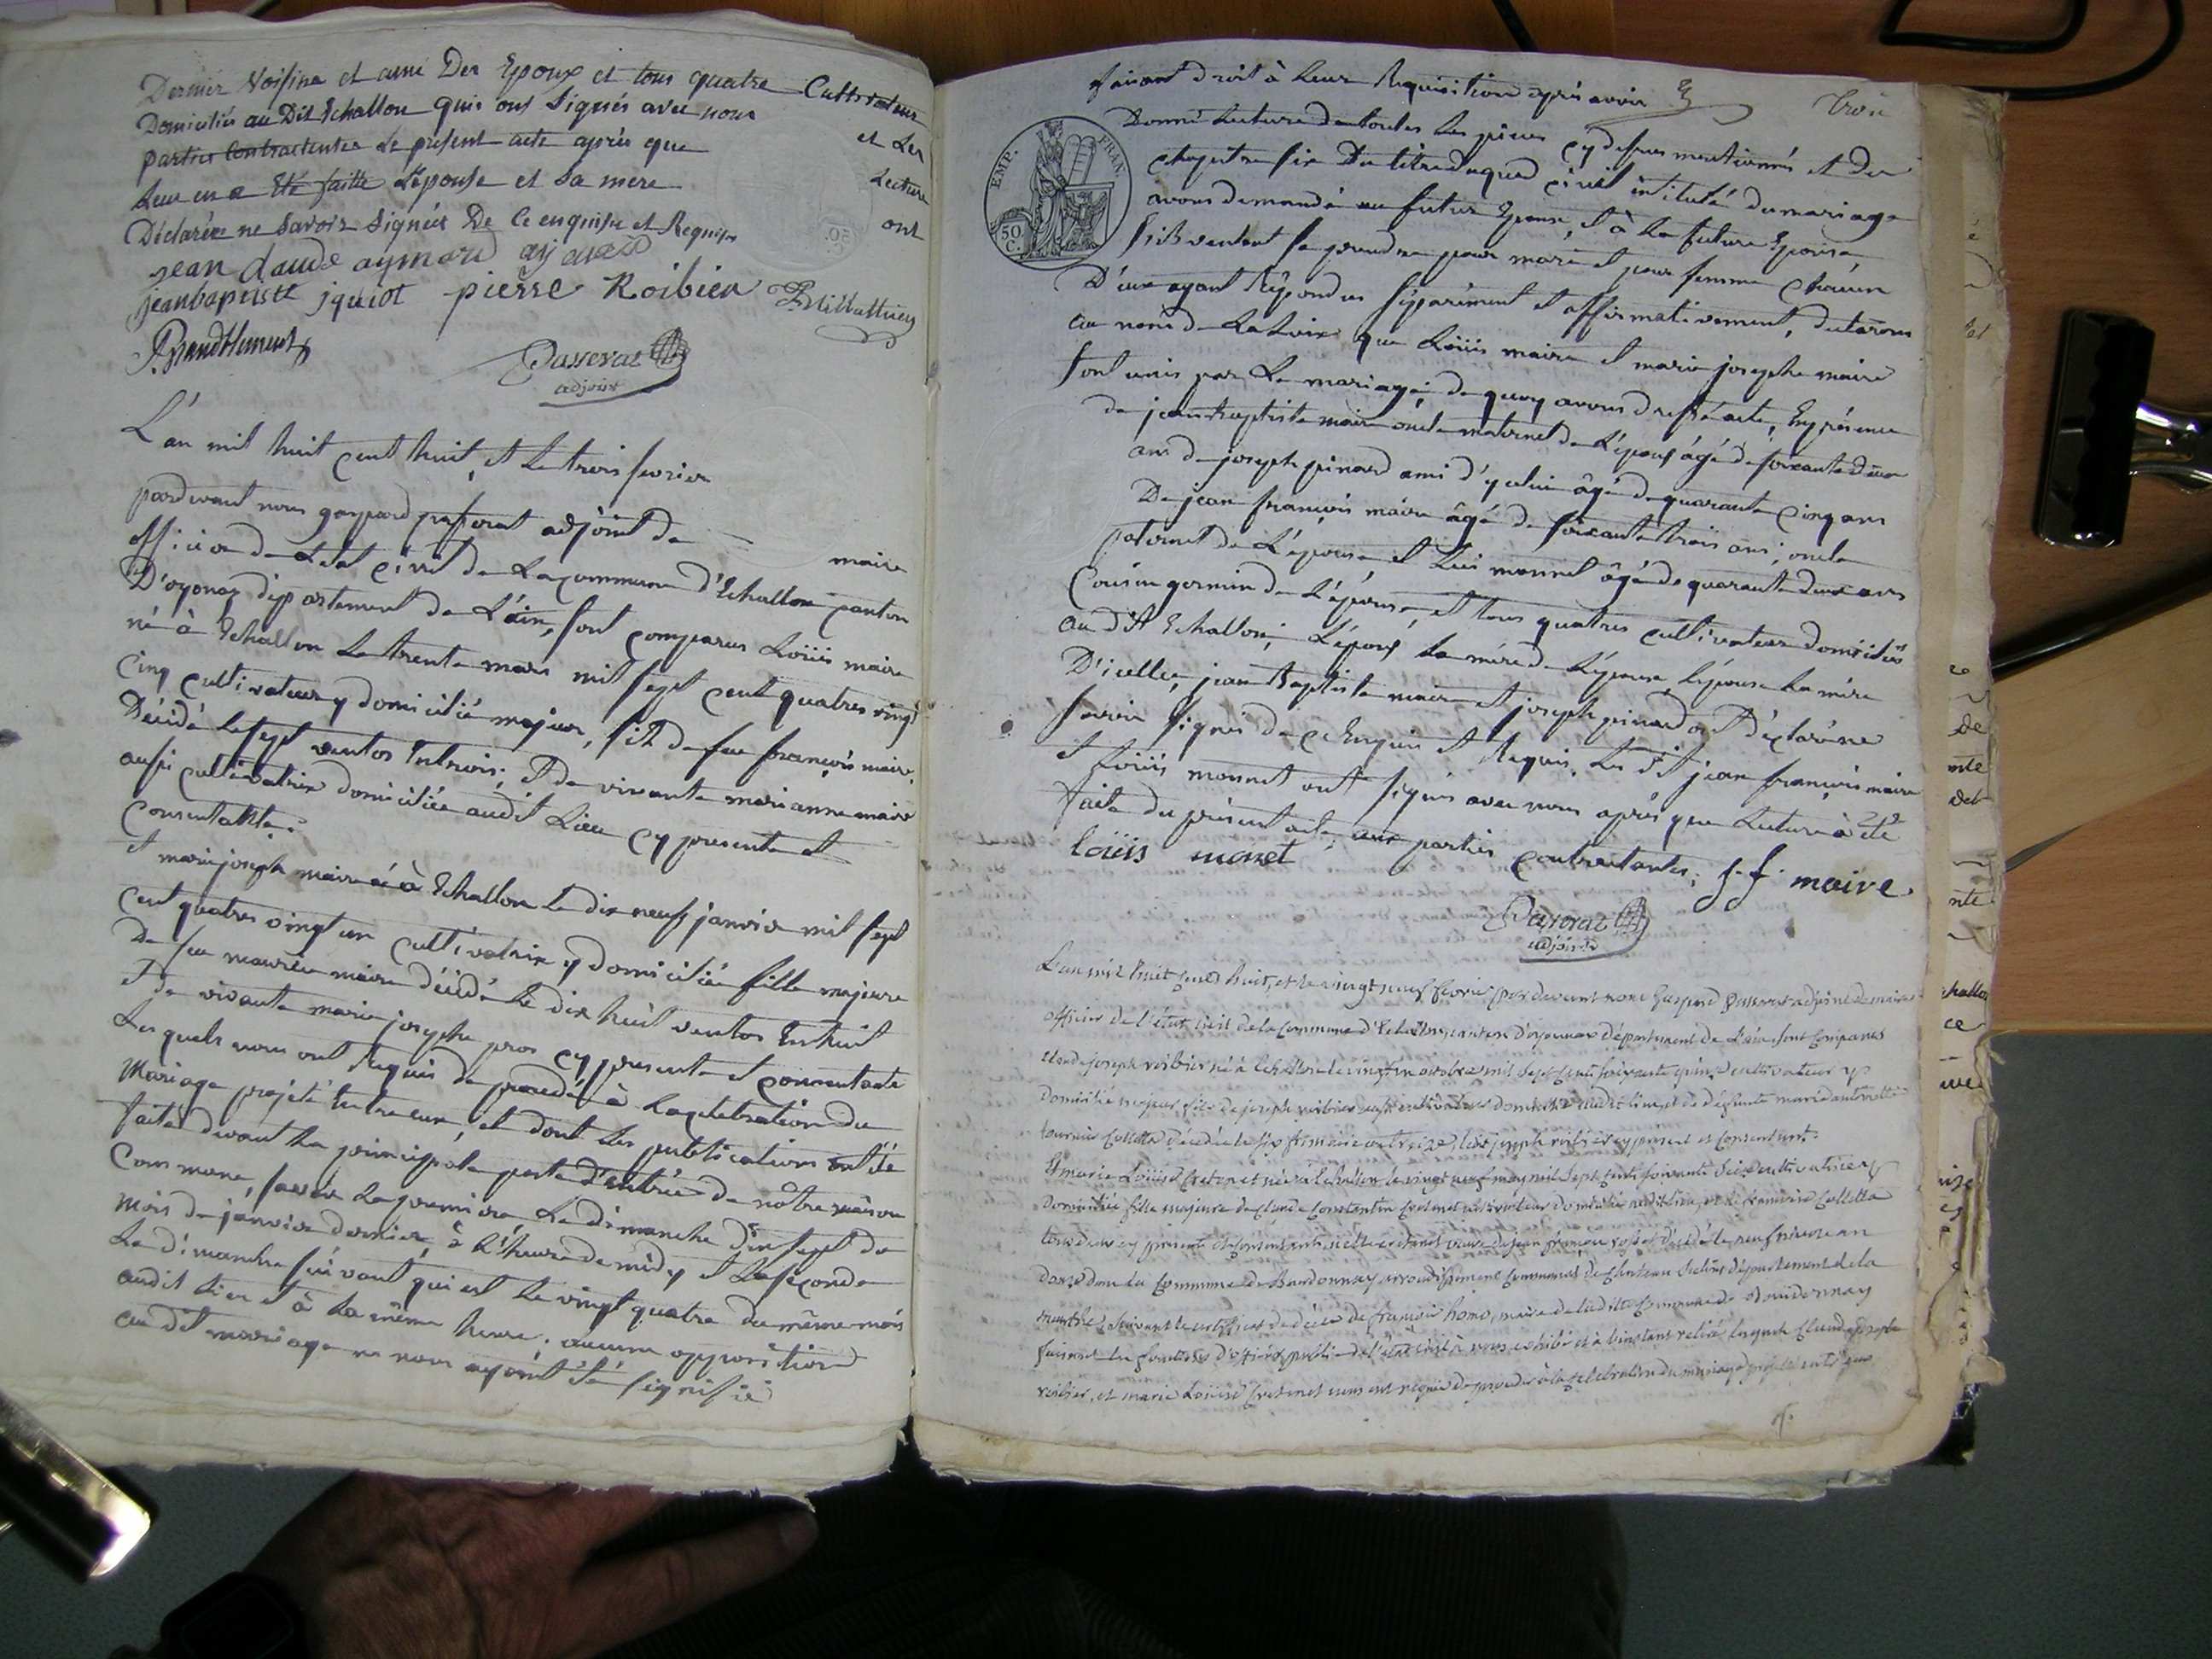 Dernier Voisine et ami Des Epoux et tous quatre Cultivateur
Domiciliés au Dit Echallon quis ont Signés avec nous et Les
parties Contractentes Le présent acte après que Lecture
Leur en a Eté faitte L'épouse et Sa mere ont
Déclarée ne Savoir Signées De Ce enquise et Requise
jean claude aymard
jeanbaptiste jquiot pierre Roibier
Passerat
adjoint
L'an mil huit cent huit, et Le trois fevrier
pardevant nous gaspard passerat adjoint de maire
officier de Letat civil de La commune d'Echallon canton
D'oyonax département de L'ain, sont comparus Loüis maire
né à Echallon Le trente mars mil sept cent quatres vingt
cinq cultivateur y domicilié majeur, fils de feu françois maire,
Décédé Le sept ventos Entrois; Et de vivante marianne maire
aussi cultivatrix domiciliée audit Lieu cy presente et
Consentante:
et marie joseph maire né à Echallon Le dix neuf janvier mil sept
cent quatres vingt un cultivatrix y domiciliée fille majeure
de feu maurice maire décédé Le dix huit ventos Enhuit
et de vivante marie josephe pros cy presente et consentante
Lesquels nous ont Requis de procedé à La celebration du
Mariage projeté Entre eux, et dont Les publications ont été
faites devant La principale porte d'entrée de nôtre maison
Commune, savoir La premiere Le dimanche dix sept du
mois de janvier dernier, à L'heure de midy et La seconde
Le dimanche suivant qui est Le vingt quatre du même mois
audit Lieu et à La même heure; aucune opposition
au dit mariage ne nous ayant été signifié
faisant droit à Leur Requisition après avoir
Trois
Donné Lecture de toutes Les pieces cy dessus mentionnés et du
EMP. FRAN.
50 C.
chapitre six Du titre du code civil intitulé du mariage
avons demandé au futur Epoux, et à La future Epouse
s'ils veulent se prendre pour mari et pour femme chacun
D'eux ayant Répondus séparément et affirmativement, declarons
au nom de La Loix que Loüis maire et marie josephe maire
sont unis par Le mariage; de quoy avons dressé acte, En présence
de jean baptiste maire oncle maternel de L'époux âgé de soixante deux
ans de joseph pinard ami d'y celui âgé de quarante cinq ans
De jean françois maire âgé de soixante trois ans, oncle
paternel de L'épouse et Loüis monnet âgé de quarante deux ans
Cousin germin de L'épouse, et tous quatres cultivateurs domiciliés
au dit Echallon; L'époux La mère de L'époux, L'épouse La mère
D'icelle, jean Baptiste maire et joseph pinard ont déclaré ne
savoir signés de ce Enquis et Requis. Les dit jean françois maire
et Loüis monnet ont signés avec nous après que Lecture à été
faite du présent acte aux parties contractantes;
loüis monet j. f. maire
Passerat
adjoint
L'an mil huit cent huit, et le vingt neuf fevrier pardevant nous Gaspard Passerat adjoint de maire
officier de l'état civil de la Commune d'Echallon canton d'oyonnax département de L'ain, sont Comparus
Claude joseph roibier né à Echallon le vingt un octobre mil sept Cent soixante quinze cultivateur y
domicilié majeur fils de joseph roibier aussi cultivateur domicilié audit lieu, et de défunte
décédée le six frimaire an treize, ledit joseph roibier cy présent et Consentent.
Et marie Loüise Cretenet née à Echallon le vingt neuf may mil sept Cent soixante Seize cultivatrice y
domiciliée fille majeure de Claude Constantin Cretenet cultivateur domicilié audit lieu, et de francoise Colletta
tous deux cy présents et Consentants, icelle cretenet veuve de jean françois décédé le neuf nivose an
douze dans la Commune de Bourdonnay arrondissement Communal de Château Salins département de la
meurthe, suivant le certificat de décès de françois homo, maire de la dite Commune de Bourdonnay
faisant les fonctions d'officier public de l'état civil à nous exhibé et à l'instant retiré lesquels Claude joseph
roibier, et marie Loüise Cretenet nous ont requis de proceder à la Celebration du mariage projeté entr'eux